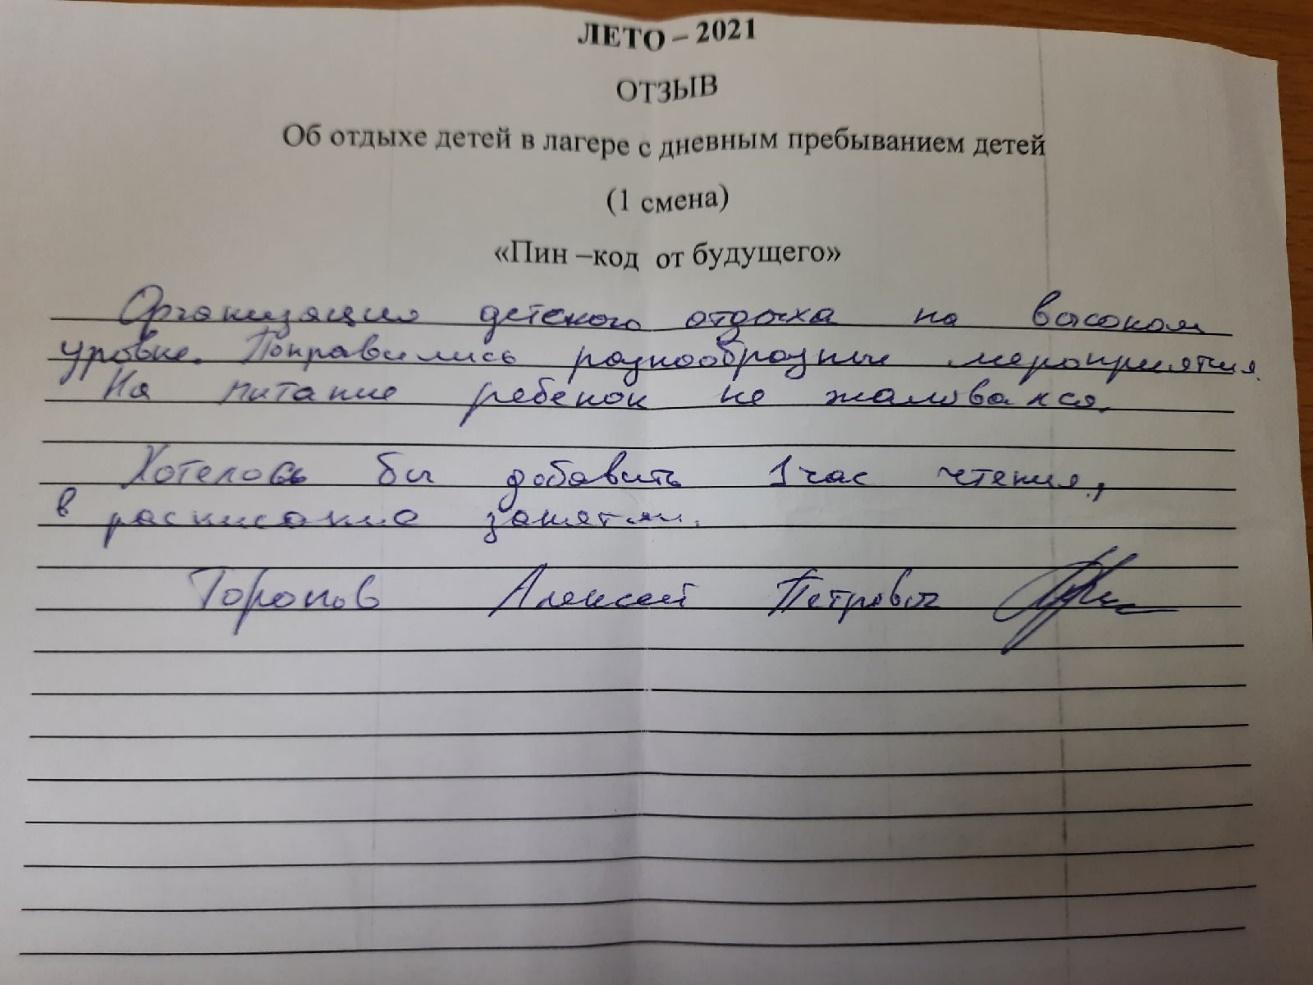 ЛЕТО – 2021
ОТЗЫВ
Об отдыхе детей в лагере с дневным пребыванием детей
(1 смена)
«Пин –код от будущего»
Организация детского отдыха на высоком
уровне. Понравились разнообразные мероприятия.
На питание ребенок не жаловался.
Хотелось бы добавить 1 час чтения,
в расписание занятий.
Торопов Алексей Петрович